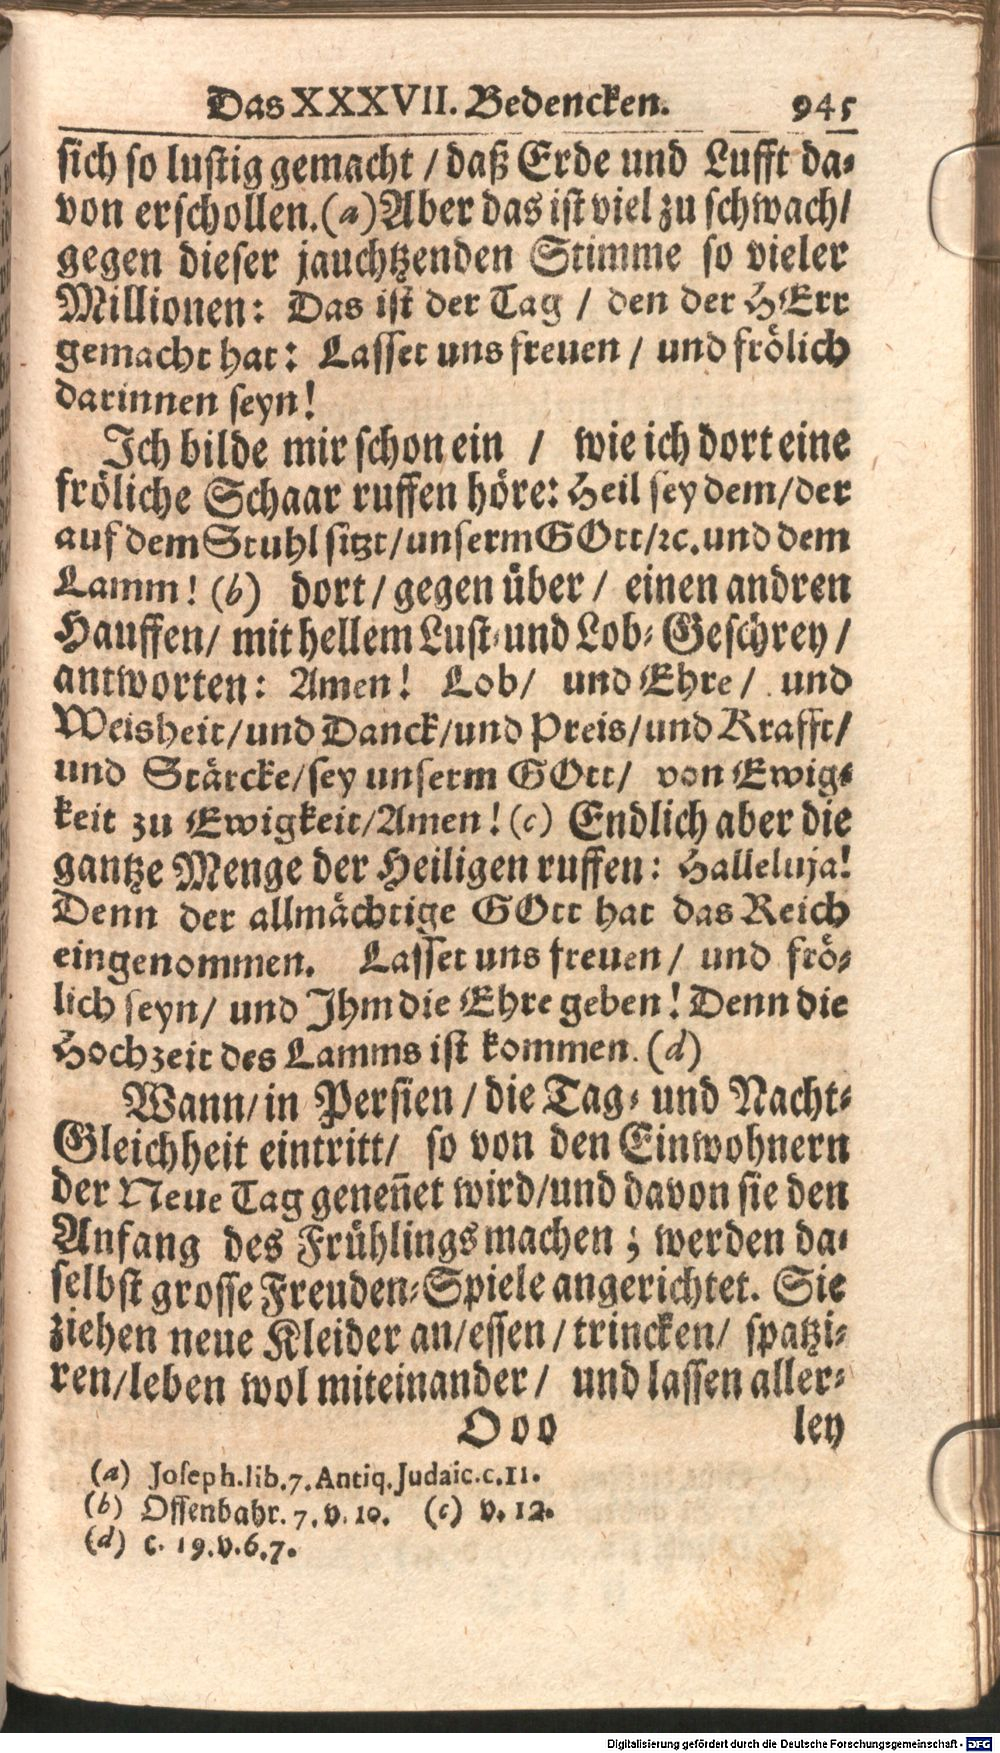 Das XXXVII. Bedencken. 945
sich so lustig gemacht / daß Erde und Lufft da-
von erschollen.(a) Aber das ist viel zu schwach/
gegen dieser jauchtzenden Stimme so vieler
Millionen: Das ist der Tag / den der HErr
gemacht hat: Lasset uns freuen / und frölich
darinnen seyn!
Ich bilde mir schon ein / wie ich dort eine
fröliche Schaar ruffen höre: Heil sey dem/der
auf dem Stuhl sitzt/unserm GOtt/ꝛc. und dem
Lamm! (b) dort/ gegen über/ einen andren
Hauffen/ mit hellem Lust- und Lob-Geschrey/
antworten: Amen! Lob/ und Ehre/ und
Weisheit/und Danck/und Preis/und Krafft/
und Stärcke/sey unserm GOtt/ von Ewig-
keit zu Ewigkeit/Amen! (c) Endlich aber die
gantze Menge der Heiligen ruffen: Halleluja!
Denn der allmächtige GOtt hat das Reich
eingenommen. Lasset uns freuen/ und frö-
lich seyn/ und Ihm die Ehre geben! Denn die
Hochzeit des Lamms ist kommen. (d)
Wann/in Persien/die Tag- und Nacht-
Gleichheit eintritt/ so von den Einwohnern
der Neue Tag geneñet wird/und davon sie den
Anfang des Frühlings machen; werden da-
selbst grosse Freuden-Spiele angerichtet. Sie
ziehen neue Kleider an/essen/trincken/ spatzi-
ren/leben wol miteinander/ und lassen aller-
Ooo ley
(a) Joseph. lib. 7. Antiq. Judaic. c. 11.
(b) Offenbahr. 7. v. 10. (c) v. 12.
(d) c. 19. v. 6. 7.
Digitalisierung gefördert durch die Deutsche Forschungsgemeinschaft - DFG